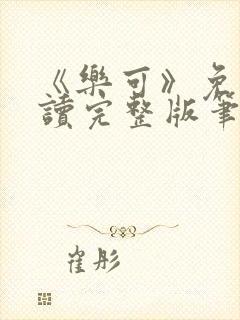 《樂可》免
讀完整版筆
崔彤